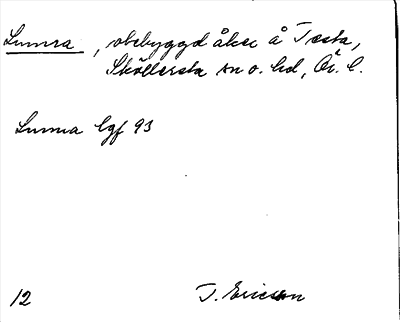 Lumra, obebyggd åker å Testa,
Sköllersta sn o. hd, Ör. l.
Lumra lgf 93
12 T. Ericson